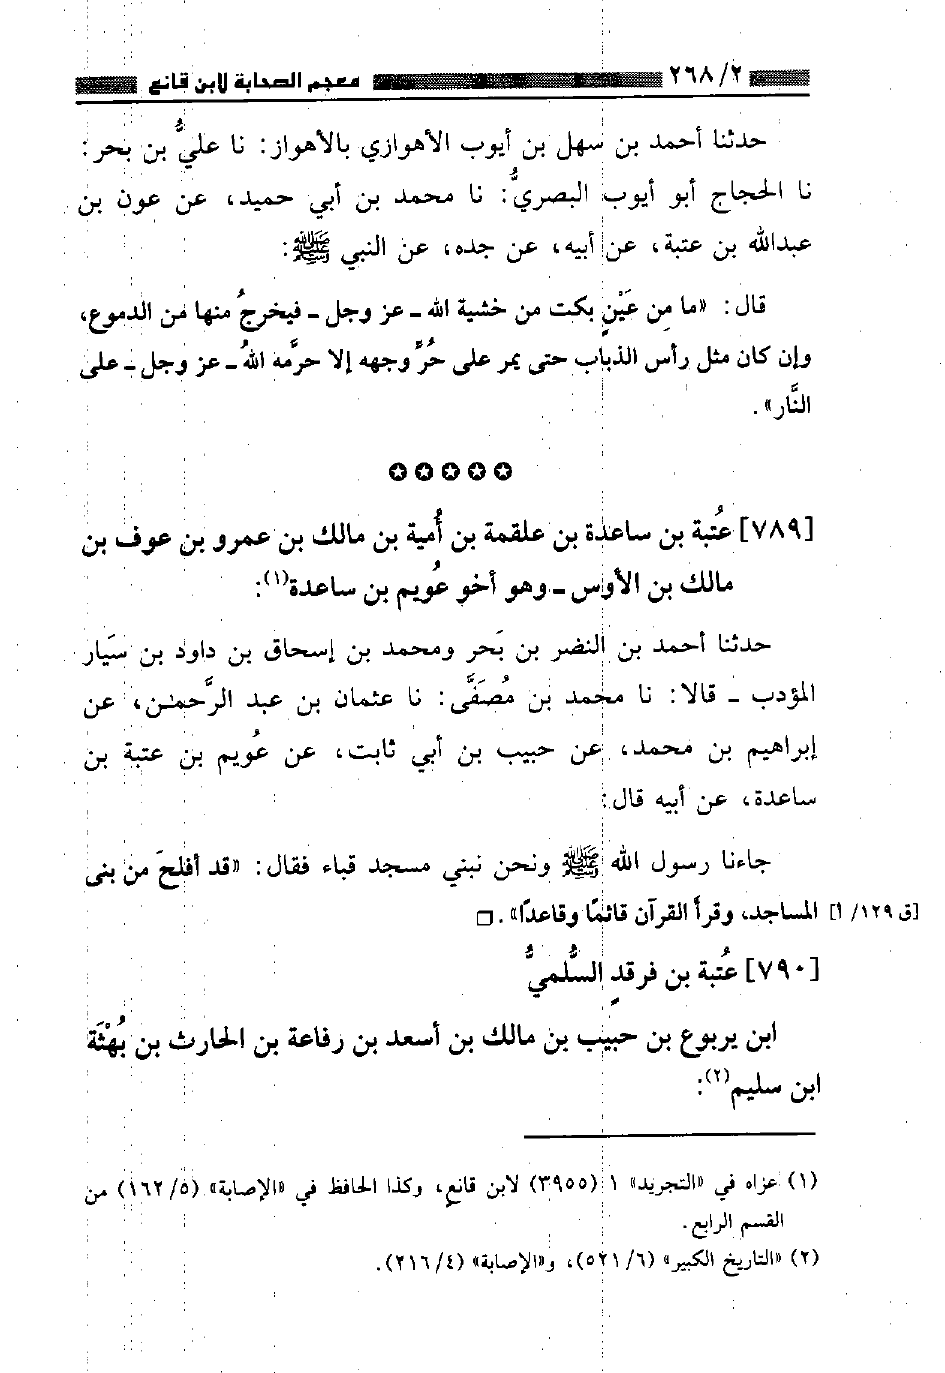 ٢٦٨/٢ معجم الصحابة لابن قانع
حدثنا أحمد بن سهل بن أيوب الأهوازي بالأهواز: نا عليُّ بن بحر:
نا الحجاج أبو أيوب البصريُّ: نا محمد بن أبي حميد، عن عون بن
عبدالله بن عتبة، عن أبيه، عن جده، عن النبي ﷺ:
قال: «ما من عَيْنٍ بكت من خشية الله ـ عز وجل ـ فيخرجُ منها من الدموع،
وإن كان مثل رأس الذباب حتى يمر على حُرِّ وجهه إلا حرَّمه اللهُ ـ عز وجل ـ على
النَّار».
[٧٨٩] عُتبة بن ساعدة بن علقمة بن أُمية بن مالك بن عمرو بن عوف بن
مالك بن الأوس ـ وهو أخو عُويم بن ساعدة(١):
حدثنا أحمد بن النضر بن بَحر ومحمد بن إسحاق بن داود بن سَيار
المؤدب ـ قالا: نا محمد بن مُصَفَّى: نا عثمان بن عبد الرَّحمٰن، عن
إبراهيم بن محمد، عن حبيب بن أبي ثابت، عن عُويم بن عتبة بن
ساعدة، عن أبيه قال:
جاءنا رسول الله ﷺ ونحن نبني مسجد قباء فقال: «قد أفلحَ من بنى
[ق ١٢٩/ أ] المساجد، وقرأ القرآن قائمًا وقاعدًا». □
[٧٩٠] عُتبة بن فرقدٍ السُّلميُّ
ابن يربوع بن حبيب بن مالك بن أسعد بن رفاعة بن الحارث بن بُهْثَة
ابن سليم(٢):
(١) عزاه في «التجريد» ١ (٣٩٥٥) لابن قانع، وكذا الحافظ في «الإصابة» (١٦٢/٥) من
القسم الرابع.
(٢) «التاريخ الكبير» (٥٢١/٦)، و«الإصابة» (٢١٦/٤).